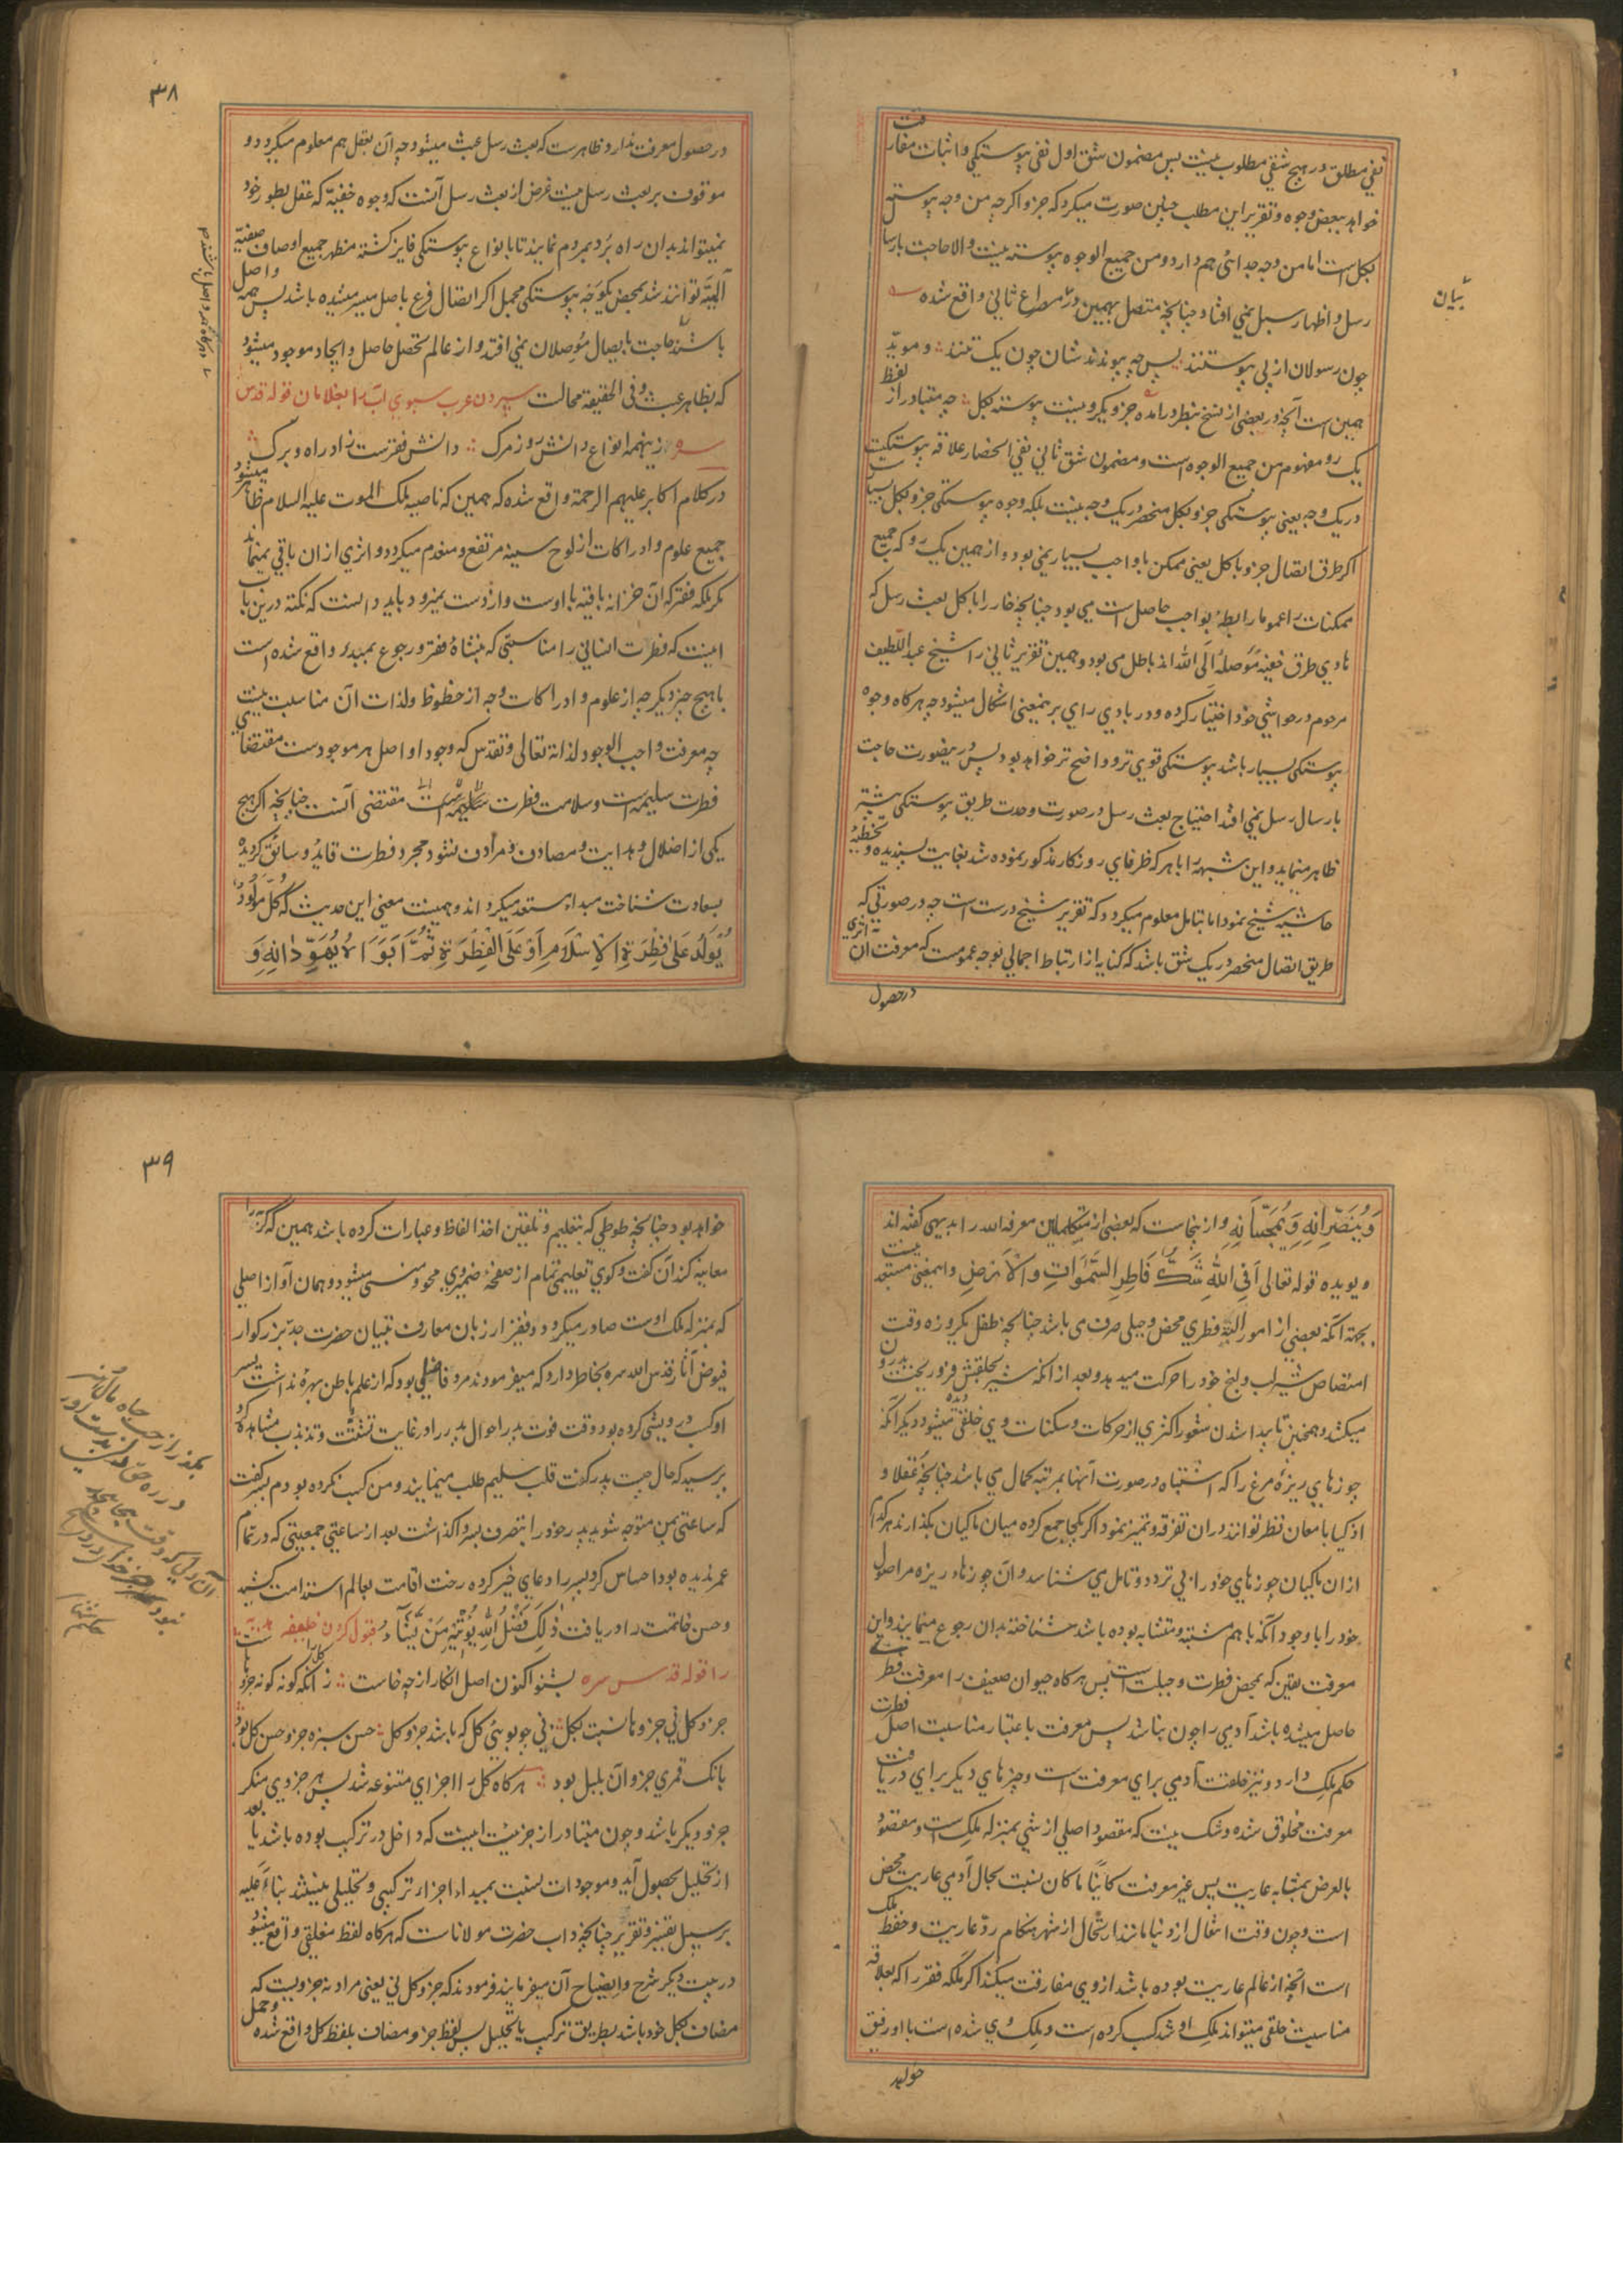 نفی مطلق در هیچ شقی مطلوب نیست پس مضمون شق اول نفی پیوستکی و اثبات مفارقت
خواهد ببعض وجوه و تقریر این مطلب چنین صورت میکیرد که جزو اکرچه من وجه پیوسته
بکل است اما من وجه جدائی هم دارد و من جمیع الوجوه پیوسته نیست والا حاجت بارسال
رسل و اظهار سبل نمی افتاد چنانچه متصل بهمین در مصراع ثانی واقع شده
چون رسولان از پی پیوستنند پس چه پیوندند شان چون یک تنند و موید
همین است آنچه در بعضی از نسخ بنظر درامده جزو یکرو نیست پیوسته بکل چه متبادر از لفظ
یک رو مفهوم من جمیع الوجوه است و مضمون شق ثانی نفی انحصار علاقه پیوستکیت
در یک وجه یعنی پیوستکی جزو بکل منحصر در یک وجه نیست بلکه وجوه پیوستکی جزو بکل بسیار است
اکر طرق اتصال جزو با کل یعنی ممکن با واجب بسیار نمی بود و از همین یک رو که جمیع
ممکنات را عموما رابطه بواجب حاصل است می بود چنانچه خار را با کل بعث رسل که
هادی طرق خفیه موصله الی الله اند باطل می بود و همین تقریر ثانی را شیخ عبد اللطیف
مرحوم در حواشی خود اختیار کرده و در بادی رای بر نمیعنی اشکال میشود چه هرکاه وجوه
پیوستکی بسیار باشد پیوستکی قوی تر و واضح تر خواهد بود پس در ینصورت حاجت
بارسال رسل نمی افتد احتیاج بعث رسل در صورت وحدت طریق پیوستکی بیشتر
ظاهر مینماید و این شبهه را با هرکه ظرفای روزکار مذکور نموده شد بغایت پسندیده و تخطیه
حاشیه شیخ نمود اما بتامل معلوم میکردد که تقریر شیخ درست است چه در صورتی که
طریق اتصال منحصر در یک شق باشد که کنایه از ارتباط اجمالی بوجه عمومست که معرفت آن اثری
در حصول
بیان
۳۸
در حصول معرفت ندارد ظاهر ست که بعث رسل عبث میشود چه آن بعقل هم معلوم میکردد و
موقوف بر بعث رسل نیست غرض از بعث رسل آنست که وجوه خفیه که عقل بطور خود
نمیتواند بدان راه برد بمردم نمایند تا بانواع پیوستکی فایز کشته مظهر جمیع اوصاف خفیه
الهیه توانند شد بمحض یکوجه پیوستکی مجمل اکر اتصال فرع باصل میسر میشده باشد پس همه واصل
باشند حاجت بایصال موصلان نمی افتد و از عالم تحصل حاصل و ایجاد موجود میشود
که بظاهر عبث و فی الحقیقة محالست سپردن عرب سبوی آب را بغلامان قوله قدس
سره زینهمه انواع دانش روز مرک دانش فقرست زاد راه و برک
در کلام اکابر علیهم الرحمة واقع شده که همین که ناصیه ملک الموت علیه السلام ظاهر میشود
جمیع علوم و ادراکات از لوح سینه مرتفع و منعدم میکردد و اثری از ان باقی نمیماند
مکر ملکه فقر که آن خزانه باقیه با اوست و از دست نمیرود باید دانست که نکته درین باب
اینست که فطرت انسانی را مناسبتی که بنشاۀ فقر و رجوع بمبدء واقع شده است
با هیچ چیز دیکر چه از علوم و ادراکات و چه از حظوظ و لذات آن مناسبت نیست
چه معرفت واجب الوجود لذاته تعالی و تقدس که وجود او اصل هر موجودست مقتضای
فطرت سلیمه است و سلامت فطرت مقتضی آنست چنانچه اکر هیچ
یکی از اضلال و هدایت و مصادن و مرادن نشود مجرد فطرت قاید و سائق کردیده
بسعادت شناخت مبداء مستعد میکرداند و همینست معنی این حدیث که کُلُّ مَوْلُودٍ
یُوْلَدُ عَلَی فِطْرَةِ الْاِسْلَامِ اَوْ عَلَی الْفِطْرَةِ ثُمَّ اَبَوَاهُ یُهَوِّدَانِهِ وَ
وَ یُنَصِّرَانِهِ وَ یُمَجِّسَانِهِ و از ینجاست که بعضی از متکلمین معرفة الله را بدیهی کفته اند
و یویده قوله تعالی اَفِی اللهِ شَكٌّ فَاطِرِ السَّمٰوَاتِ وَالْاَرْضِ و اینمعنی مستبعد نیست
بجهة آنکه بعضی از امور البته فطری محض و جبلی صرف می باشد چنانچه طفل یکروزه وقت
امتصاص شیر لب و لنج خود را حرکت میدهد و بعد از انکه شیر بحلقش فرو ریخت
میکشد و همچنین تا پیدا شدن شعور اکثری از حرکات و سکنات وی خلقی میشود دیکر آنکه
جوزهای ریزۀ مرغ را که اشتباه در صورت آنها بمرتبه کمال می باشد چنانچه عقلا و
اذکیا بامعان نظر توانند دران تفرقه و تمیز نمود اکر یکجا جمع کرده میان ماکیان بکذارند هر کدام
ازان ماکیان جوزهای خود را بی تردد و تامل می شناسد و آن جوزهاء ریزه مر اصول
خود را با وجود آنکه با هم مشتبه و متشابه بوده باشد شناخته بدان رجوع مینمایند و این
معرفت یقین که بمحض فطرت و جبلت است پس هرکاه حیوان ضعیف را معرفت فطری
حاصل میشده باشد آدمی را چون نباشد پس معرفت باعتبار مناسبت اصل فطرت
حکم ملک دارد و نیز خلقت آدمی برای معرفت است و چیزهای دیکر برای دریافت
معرفت مخلوق شده و شک نیست که مقصود اصلی از شی بمنزله ملک است و مقصود
بالعرض بمثابه عاریت پس غیر معرفت کائنا ما کان نسبت بحال آدمی عاریت محض
است و چون وقت انتقال از دنیا مانند ارتحال از شهر هنکام رد عاریت و حفظ ملک
است آنچه از عالم عاریت بوده باشد از وی مفارقت میکند اکر ملکه فقر را که بعلاقه
مناسبت خلقی میتواند ملک او شد کسب کرده است و ملک وی شده است با او رفیق
خواهد
۳۹
خواهد بود چنانچه طوطی که بتعلیم و تلقین اخذ الفاظ و عبارات کرده باشد همین که کربه را
معاینه کند آن کفت و کوی تعلیمی تمام از صفحه ضمیر وی محو و منسی میشود و همان آواز اصلی
که بمنزله ملک اوست صادر میکردد و فقیر از زبان معارف تبیان حضرت جد بزرکوار
فیوض آثار قدس الله سره بخاطر دارد که میفرمودند مرد فاضلی بود که از علم باطن بهره نداشت پسر
او کسب درویشی کرده بود وقت فوت پدر احوال پدر را در غایت تشتت و تذبذب مشاهده کرد
پرسید که حال چیست پدر کفت قلب سلیم طلب مینمایند و من کسب نکرده بودم پسر کفت
که ساعتی بمن متوجه شوید پدر خود را بتصرف پسر واکذاشت بعد از ساعتی جمعیتی که در تمام
عمر ندیده بود احساس کرد پسر را دعای خیر کرده رخت اقامت بعالم استدامت کشید
و حسن خاتمت را دریافت ذٰلِكَ فَضْلُ اللهِ یُؤْتِیْهِ مَنْ یَّشَاءُ قبول کردن خلیفه هدیه
را قوله قدس سره بشنو اکنون اصل انکار از چه خاست زانکه کل را کونه کونه جزوهاست
جزو کل نی جزوها نسبت بکل نی چو بوی کل که باشد جزو کل حسن سبزه جزو حسن کل بود
بانک قمری جزو آن بلبل بود هرکاه کل را اجزای متنوعه شد پس هر جزوی منکر
جزو دیکر باشد و چون متبادر از جزئیت اینست که داخل در ترکیب بوده باشد یا بعد
از تحلیل بحصول آید و موجودات نسبت بمبداء اجزاء ترکیبی و تحلیلی نیستند بناءً علیه
بر سبیل تفسیر و تقریر چنانچه داب حضرت مولاناست که هرکاه لفظ مغلقی واقع میشود
در بیت دیکر شرح و ایضاح آن میفرمایند فرمودند که جزو کل نی یعنی مراد نه جزویست که
مضاف بکل خود باشد بطریق ترکیب یا تحلیل پس لفظ جزو مضاف بلفظ کل واقع شده و حمل